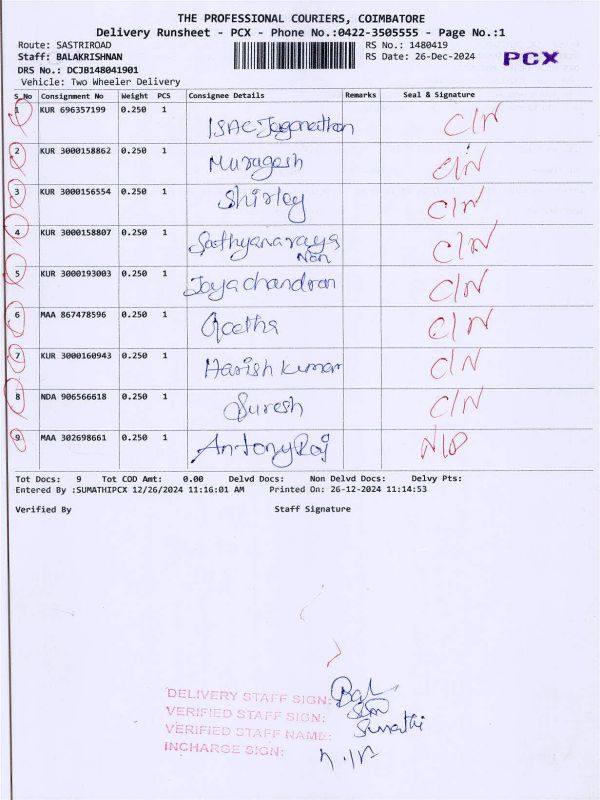 THE PROFESSIONAL COURIERS, COIMBATORE
Delivery Runsheet - PCX - Phone No.:0422-3505555 - Page No.:1
Route: SASTRIROAD RS No.: 1480419
Staff: BALAKRISHNAN RS Date: 26-Dec-2024 PCX
DRS No.: DCJB148041901
Vehicle: Two Wheeler Delivery
S_No Consignment No Weight PCS Consignee Details Remarks Seal & Signature
1 KUR 696357199 0.250 1 ISAC Jaganathan C/N
2 KUR 3000158862 0.250 1 Murugesh C/N
3 KUR 3000156554 0.250 1 Shirley C/N
4 KUR 3000158807 0.250 1 Sathyanaraya Nan C/N
5 KUR 3000193003 0.250 1 Jayachandran C/N
6 MAA 867478596 0.250 1 Geetha C/N
7 KUR 3000160943 0.250 1 Harish kumar C/N
8 NDA 906566618 0.250 1 Suresh C/N
9 MAA 302698661 0.250 1 Antony Raj
Tot Docs: 9 Tot COD Amt: 0.00 Delvd Docs: Non Delvd Docs: Delvy Pts:
Entered By :SUMATHIPCX 12/26/2024 11:16:01 AM Printed On: 26-12-2024 11:14:53
Verified By Staff Signature
DELIVERY STAFF SIGN: Bal
VERIFIED STAFF SIGN:
VERIFIED STAFF NAME: Sumathi
INCHARGE SIGN: